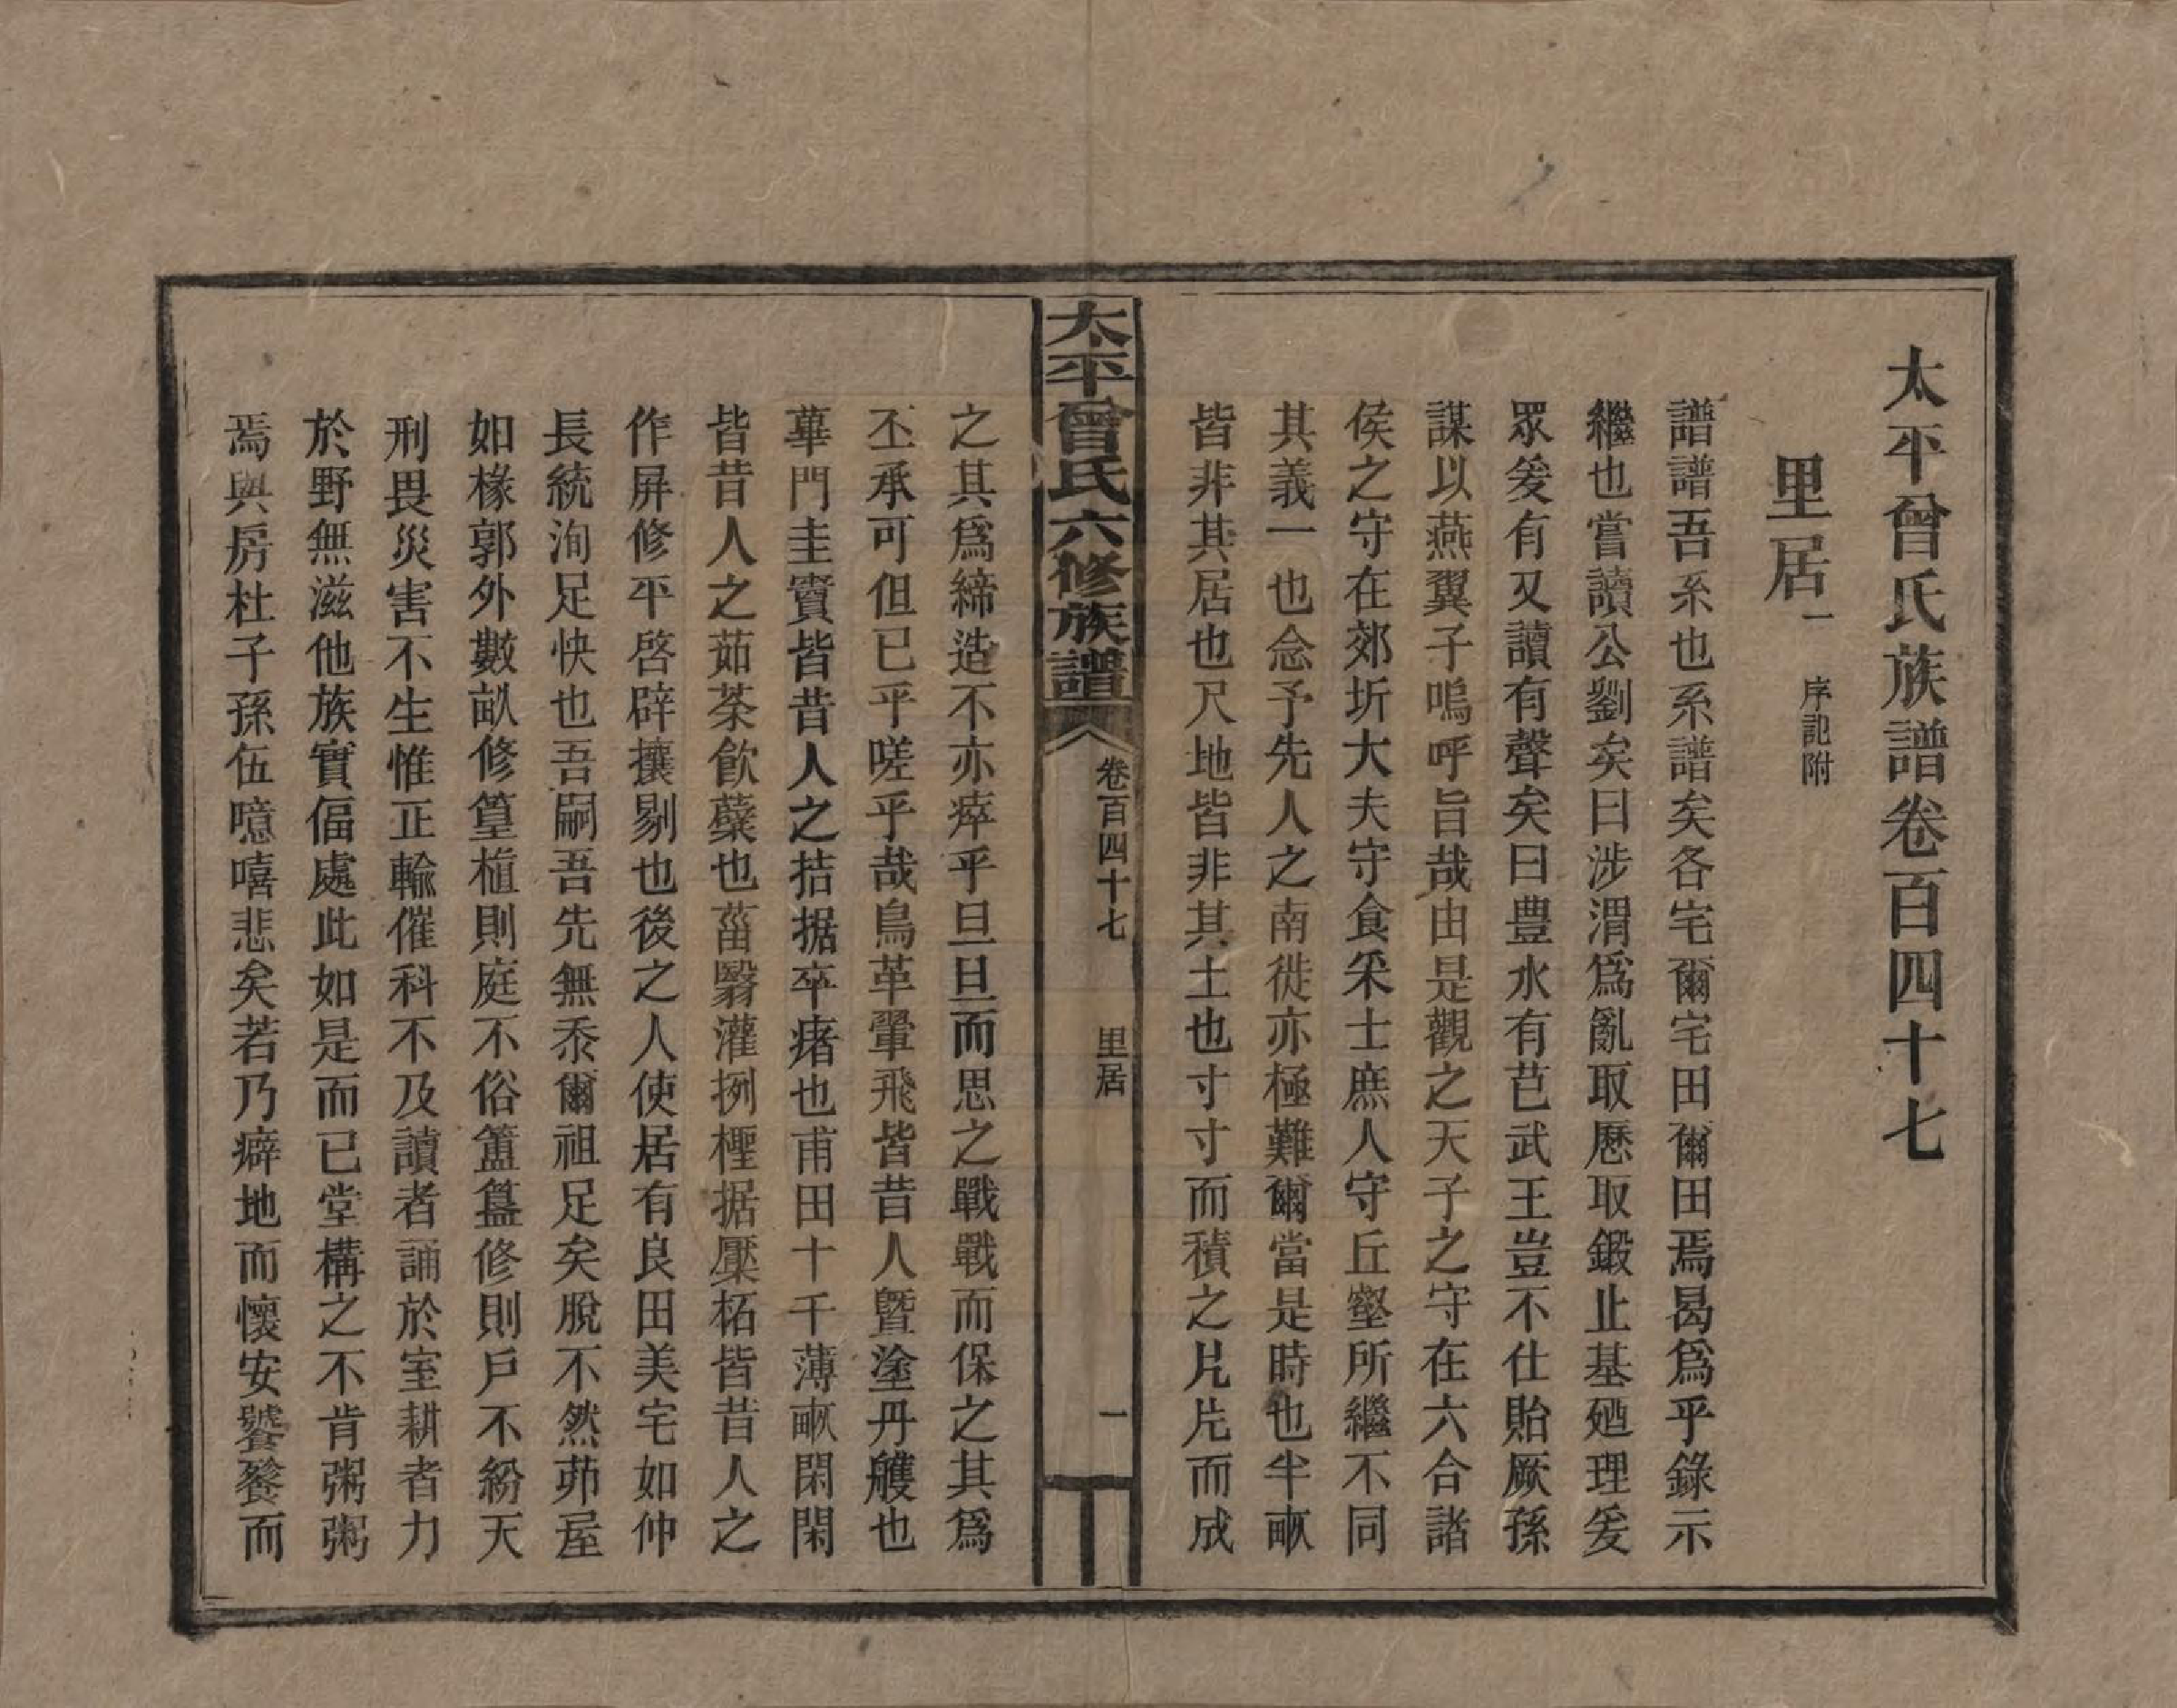 太平曾氏族譜卷百四十七
里居一 序記附
譜譜吾系也系譜矣各宅爾宅田爾田焉曷爲乎錄示
繼也嘗讀公劉矣曰涉渭爲亂取厲取鍛止基廼理爰
眾爰有又讀有聲矣曰豊水有芑武王豈不仕貽厥孫
謀以燕翼子嗚呼旨哉由是觀之天子之守在六合諸
侯之守在郊圻大夫守食采士庶人守丘壑所繼不同
其義一也念予先人之南徙亦極難爾當是時也半畝
皆非其居也尺地皆非其土也寸寸而積之片片而成
太平曾氏六修族譜 卷百四十七 里居 一
之其爲締造不亦瘁乎旦旦而思之戰戰而保之其爲
丕承可但已乎嗟乎哉鳥革翬飛皆昔人暨塗丹雘也
蓽門圭竇皆昔人之拮据卒瘏也甫田十千薄畝閑閑
皆昔人之茹荼飮蘗也菑翳灌栵檉据檿柘皆昔人之
作屛修平啓辟攘剔也後之人使居有良田美宅如仲
長統洵足快也吾嗣吾先無忝爾祖足矣脫不然茆屋
如椽郭外數畝修篁植則庭不俗簠簋修則戶不紛天
刑畏災害不生惟正輸催科不及讀者誦於室耕者力
於野無滋他族實偪處此如是而已堂構之不肯粥粥
焉與房杜子孫伍噫嘻悲矣若乃癖地而懷安饕餮而